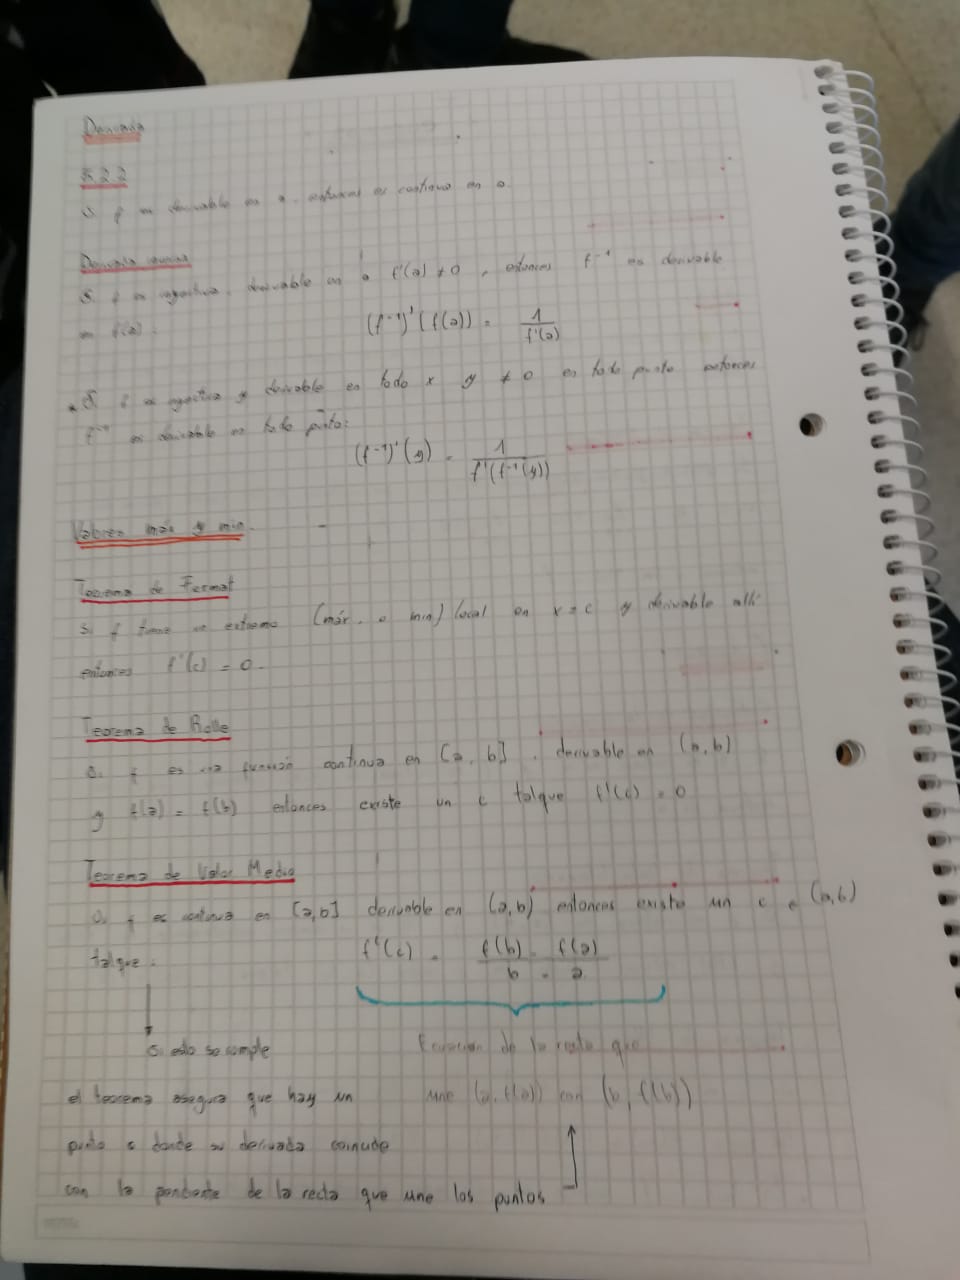 Derivada
3.2.2
Si f es derivable en a entonces es continua en a.
Derivada inversa
Si f es inyectiva, derivable en a f'(a) ≠ 0, entonces f⁻¹ es derivable
en f(a):
(f⁻¹)'(f(a)) = 1/f'(a)
Si f es inyectiva y derivable en todo x y ≠ 0 en todo punto entonces
f⁻¹ es derivable en todo punto:
(f⁻¹)'(y) = 1/f'(f⁻¹(y))
Valores max y min.
Teorema de Fermat
Si f tiene un extremo (máx. o min) local en x = c y derivable allí
entonces f'(c) = 0.
Teorema de Rolle
Si f es una función continua en [a, b], derivable en (a, b)
y f(a) = f(b) entonces existe un c talque f'(c) = 0
Teorema de Valor Medio
Si f es continua en [a,b] derivable en (a,b) entonces existe un c e (a,b)
talque:
f'(c) = f(b) - f(a) / b - a
Si esto se cumple
Ecuacion de la recta que
el teorema asegura que hay un
une (a, f(a)) con (b, f(b))
punto c donde su derivada coincide
con la pendiente de la recta que une los puntos